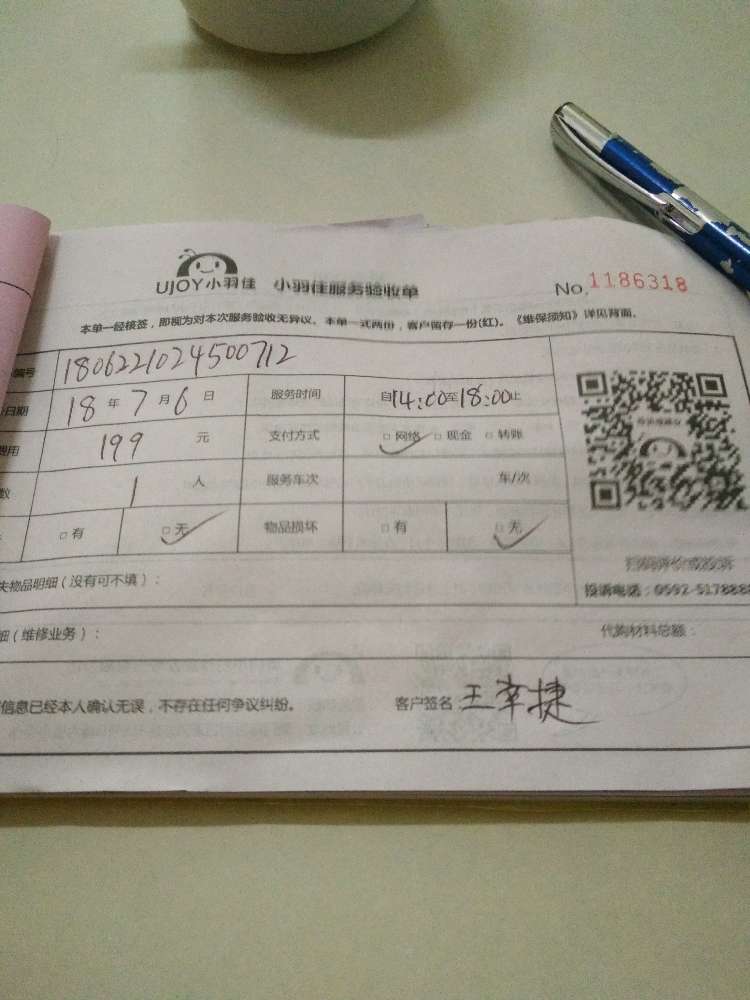 UJOY小羽佳 小羽佳服务验收单 No.1186318
本单一经接签，即视为对本次服务验收无异议。本单一式两份，客户留存一份(红)。《维保须知》详见背面。
编号 1806221024500712
日期 18年7月6日 服务时间 自14:00至18:00止
费用 199元 支付方式 □网络 □现金 □转账
数 1人 服务车次 车/次
□有 □无 物品损坏 □有 □无
扫码评价或投诉
失物品明细（没有可不填）： 投诉电话：0592-5178888
细（维修业务）： 代购材料总额：
信息已经本人确认无误，不存在任何争议纠纷。 客户签名：王幸捷